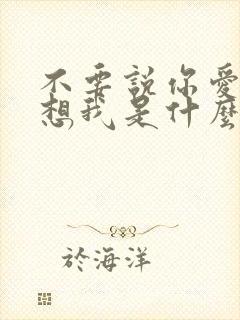 不要說你愛
想我是什麼
於海洋